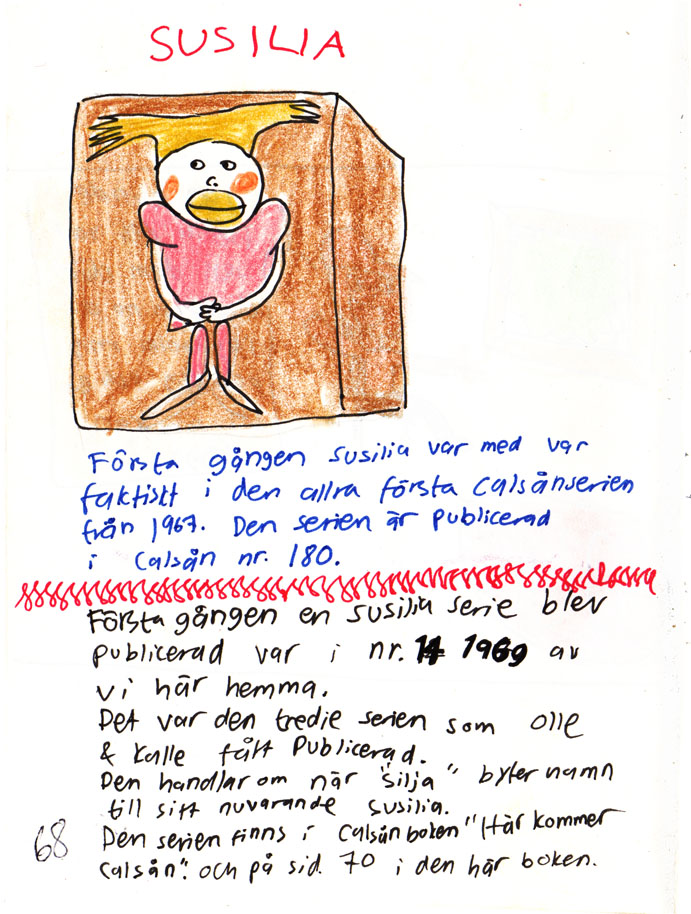 SUSILIA
Första gången susilia var med var
faktiskt i den allra första Calsånserien
från 1967. Den serien är publicerad
i Calsån nr. 180.
Första gången en susilia serie blev
publicerad var i nr. 14 1969 av
vi här hemma.
Det var den tredje serien som olle
& kalle fått publicerad.
Den handlar om när "silja" byter namn
till sitt nuvarande susilia.
Den serien finns i Calsån boken "Här kommer
Calsån". och på sid. 70 i den här boken.
68